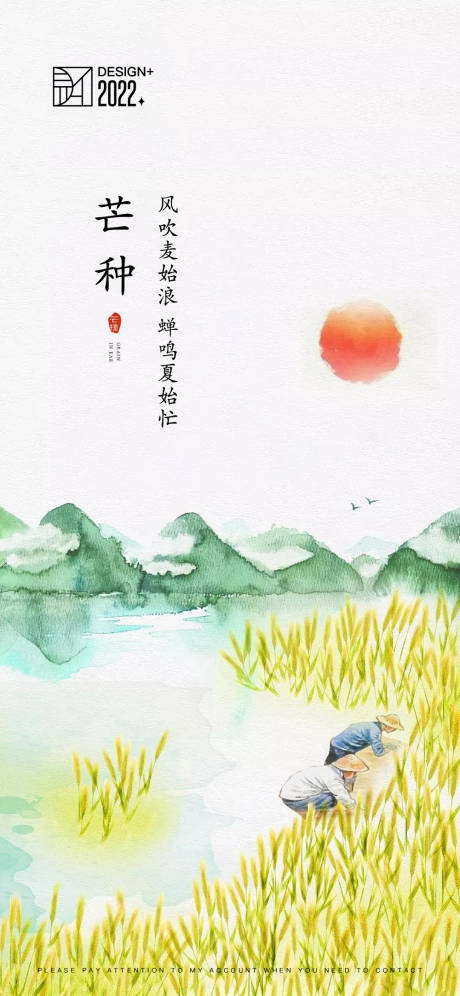 DESIGN+
2022
芒种
风吹麦始浪 蝉鸣夏始忙
芒种
GRAIN
IN EAR
PLEASE PAY ATTENTION TO MY ACCOUNT WHEN YOU NEED TO CONTACT